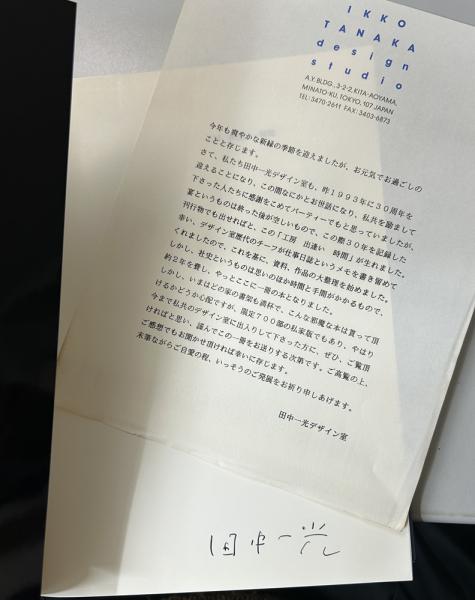 IKKO
TANAKA
design
studio
A.Y. BLDG., 3-2-2, KITA-AOYAMA,
MINATO-KU, TOKYO, 107 JAPAN
TEL: 3470-2611 FAX: 3403-6873
今年も爽やかな新緑の季節を迎えましたが、お元気でお過ごしの
ことと存じます。
さて、私たち田中一光デザイン室も、昨1993年に30周年を
迎えることになり、この間なにかとお世話になり、私共を励まして
下さった人たちに感謝をこめてパーティーでもと思っていましたが、
宴というものは終った後が空しいもので、この際30年を記録した
刊行物でも出せればと、この「工房 出逢い 時間」が生れました。
幸い、デザイン室歴代のチーフが仕事日誌というメモを書き留めて
くれましたので、これを基に、資料、作品の大整理を始めました。
しかし、社史というものは思いのほか時間と手間がかかるもので、
約2年を費し、やっとここに一冊の本となりました。
しかし、いまはどの家の書架も満杯で、こんな邪魔な本は貰って頂
けるかどうか心配ですが、限定700部の私家版でもあり、やはり
今まで私共のデザイン室に出入りして下さった方に、ぜひ、ご覧頂
ければと思い、謹んでこの一冊をお送りする次第です。ご高覧の上、
ご感想でもお聞かせ頂ければ幸いに存じます。
末筆ながらご自愛の程、いっそうのご発展をお祈り申しあげます。
田中一光デザイン室
田中一光